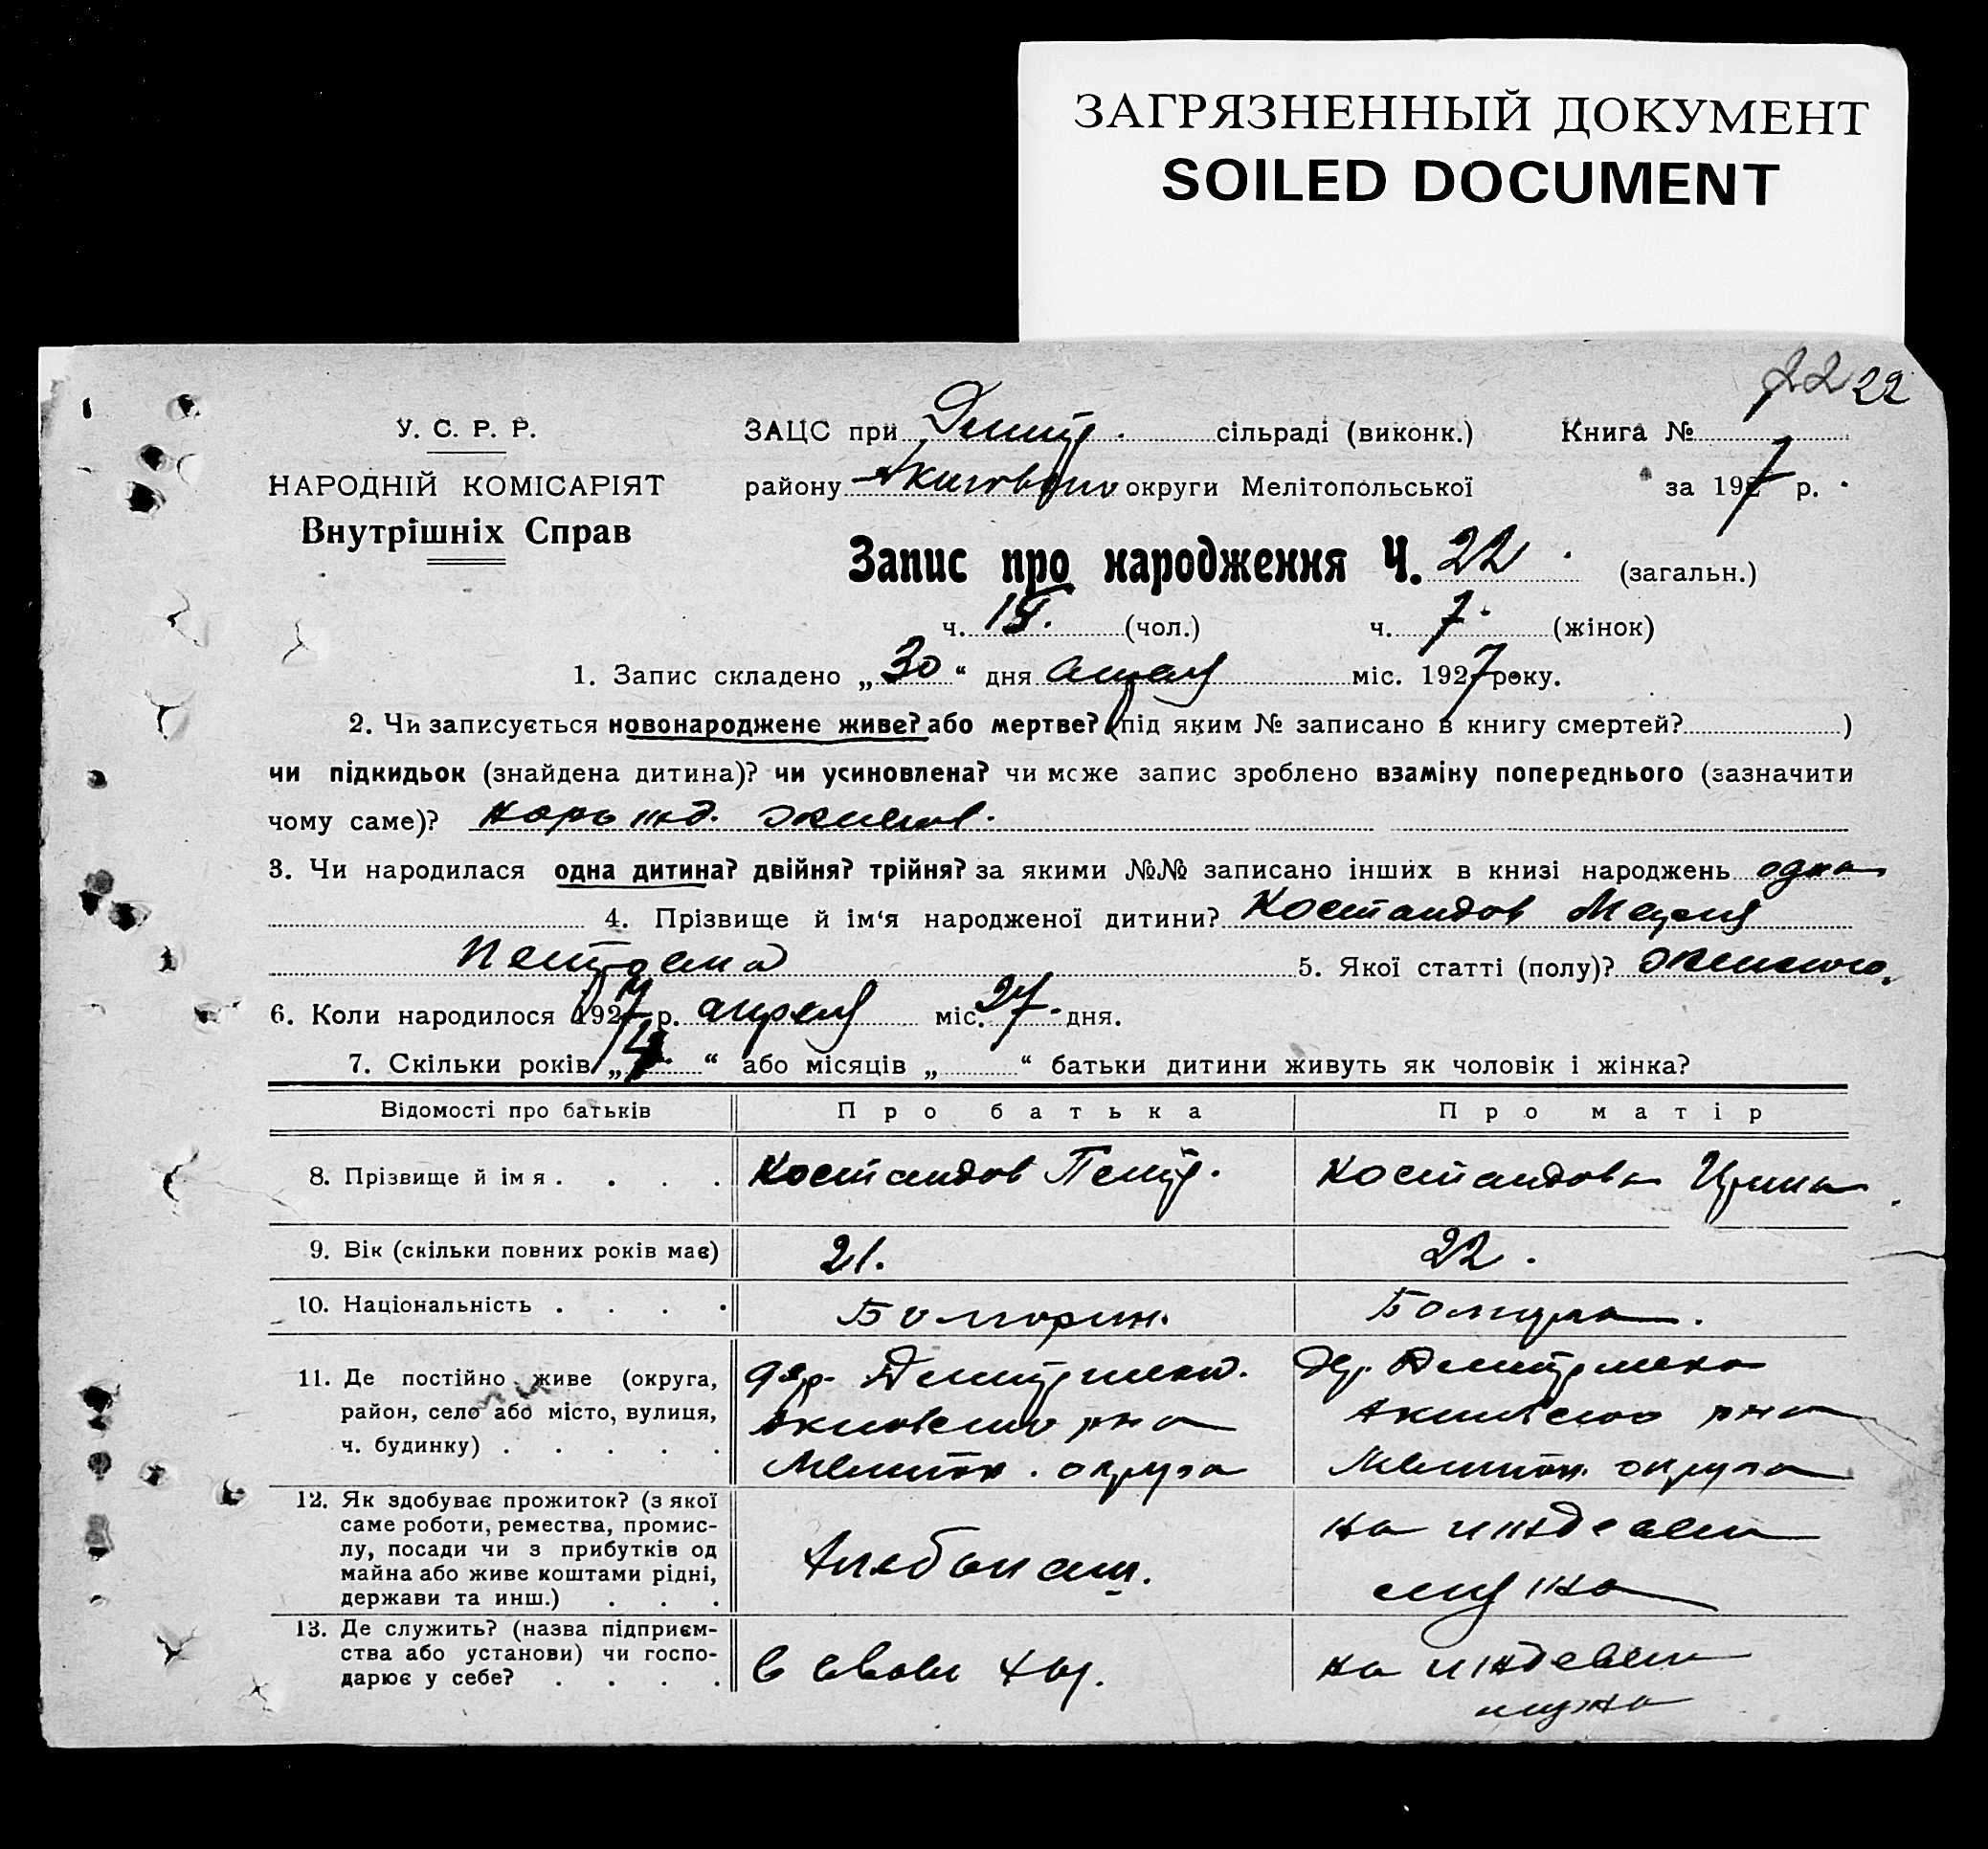 ЗАГРЯЗНЕННЫЙ ДОКУМЕНТ
SOILED DOCUMENT
22 22
У. С. Р. Р.
НАРОДНІЙ КОМІСАРІЯТ
Внутрішніх Справ
ЗАЦС при Дмитр. сільраді (виконк.) Книга №
району округи Мелітопольської за 1927 р.
Запис про народження Ч. 22 (загальн.)
ч. 15. (чол.) ч. 7. (жінок)
1. Запис складено „30“ дня апреля міс. 1927 року.
2. Чи записується новонароджене живе? або мертве? (під яким № записано в книгу смертей? )
чи підкидьок (знайдена дитина)? чи усиновлена? чи може запис зроблено взаміну попереднього (зазначити
чому саме)?
3. Чи народилася одна дитина? двійня? трійня? за якими №№ записано інших в книзі народжень одна
4. Прізвище й ім‘я народженої дитини? Костандов Мария
Петровна 5. Якої статті (полу)? женского.
6. Коли народилося 1927 р. апреля міс. 27 дня.
7. Скільки років „ “ або місяців „ “ батьки дитини живуть як чоловік і жінка?
Відомості про батьків Про батька Про матір
8. Прізвище й ім я . . . . Костандов Петр. Костандова Ирина
9. Вік (скільки повних років має) 21. 22.
10. Національність . . . . Болгарин. Болгарка.
11. Де постійно живе (округа,
район, село або місто, вулиця,
ч. будинку) . . . . .
дер. Дмитровка.
Акимовского рна
Мелитоп. округа
Дер. Дмитровка
Акимовского рна
Мелитоп. округа
12. Як здобуває прожиток? (з якої
саме роботи, ремества, промис-
лу, посади чи з прибутків од
майна або живе коштами рідні,
держави та инш.) . . .
Хлебопаш.
на иждевени
мужа
13. Де служить? (назва підприєм-
ства або установи) чи госпо-
дарює у себе? . . . .
в своем хоз.
на иждевени
мужа